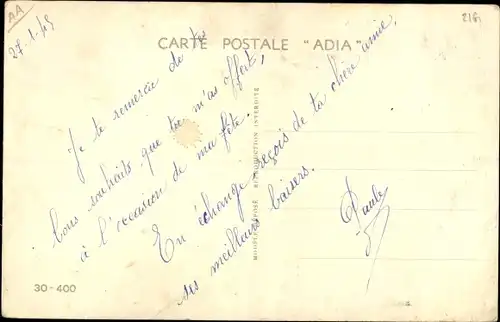 AA
27-1-45
CARTE POSTALE "ADIA"
Je te remercie de tes
bons souhaits que tu m'as offert,
à l'occasion de ma fête.
En échange reçois de ta chère amie,
ses meilleurs baisers.
Paule
MODELE DEPOSE REPRODUCTION INTERDITE
30-400